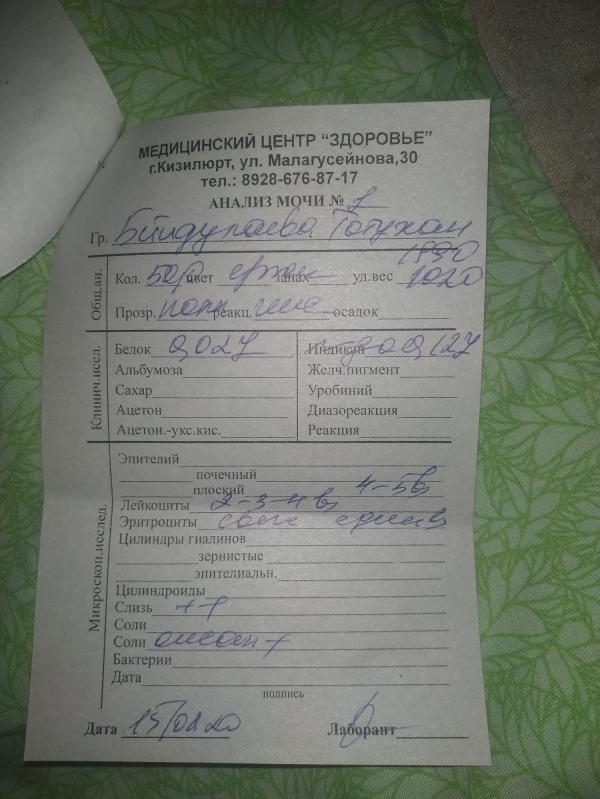 МЕДИЦИНСКИЙ ЦЕНТР "ЗДОРОВЬЕ"
г.Кизилюрт, ул. Малагусейнова,30
тел.: 8928-676-87-17
АНАЛИЗ МОЧИ №
Гр.
1990
Общ.ан.
Кол. 50,0 цвет запах уд.вес 1020
Прозр. полн реакц. осадок
Клинич.иссл.
Белок 0,027 Индикан
Альбумоза Желч.пигмент
Сахар Уробиний
Ацетон Диазореакция
Ацетон.-укс.кис. Реакция
Микроскоп.исслед.
Эпителий
почечный
плоский 4-5
Лейкоциты 2-3-4 в
Эритроциты
Цилиндры гиалинов
зернистые
эпителиальн.
Цилиндроиды
Слизь ++
Соли
Соли оксал +
Бактерии
Дата
подпись
Дата 15/02.20 Лаборант